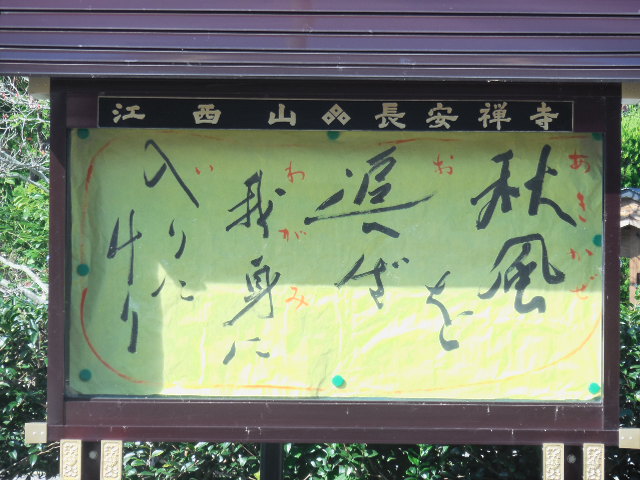 江西山 長安禅寺
秋風を
あきかぜ
追へば
お
我身に
わがみ
入りに
い
けり